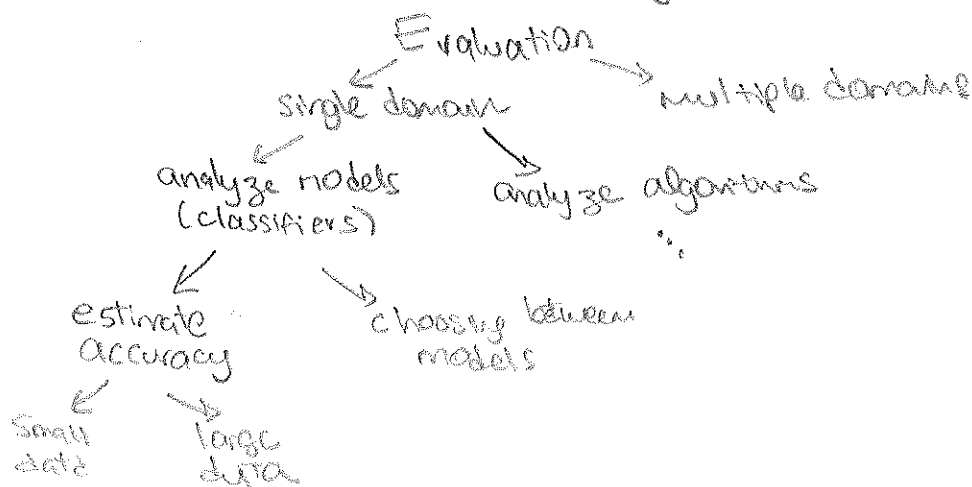 Evaluation
single domain
multiple domains
analyze models
(classifiers)
analyze algorithms
estimate
accuracy
choosing between
models
small
data
large
data